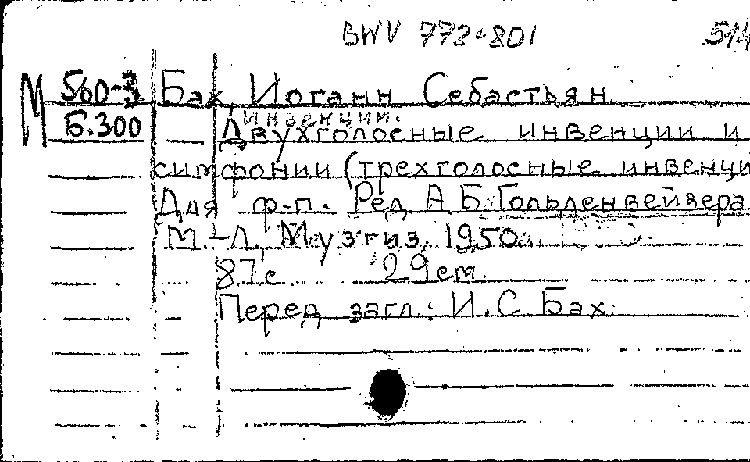 BWV 772-801 514
М 560-3 Бах, Иоганн Себастьян
Инвенции.
Б.300 Двухголосные инвенции и
симфонии (трехголосные инвенци
Для ф-п. Ред. А.Б. Гольденвейзера
М.-Л., Музгиз, 1950.
87 с. 29 см.
Перед загл.: И.С. Бах.